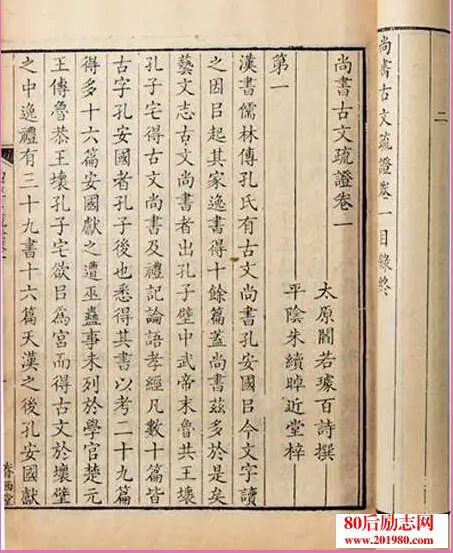 二
尚書古文疏證卷一目錄終
尚書古文疏證卷一
太原閻若璩百詩撰
平陰朱續晫近堂梓
第一
漢書儒林傳孔氏有古文尚書孔安國㠯今文字讀
之因㠯起其家逸書得十餘篇蓋尚書茲多於是矣
藝文志古文尚書者出孔子壁中武帝末魯共王壞
孔子宅得古文尚書及禮記論語孝經凡數十篇皆
古字孔安國者孔子後也悉得其書以考二十九篇
得多十六篇安國獻之遭巫蠱事未列於學官楚元
王傳魯恭王壞孔子宅欲㠯為宮而得古文於壞壁
之中逸禮有三十九書十六篇天漢之後孔安國獻
眷西堂
80后励志网
www.201980.com